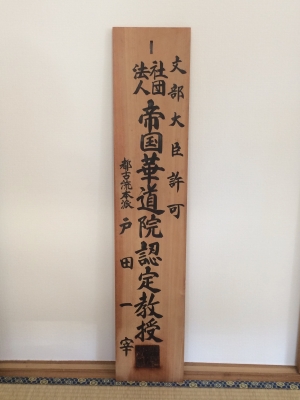 文部大臣許可
社団法人
帝国華道院認定教授
都古流本派
戸田一宰